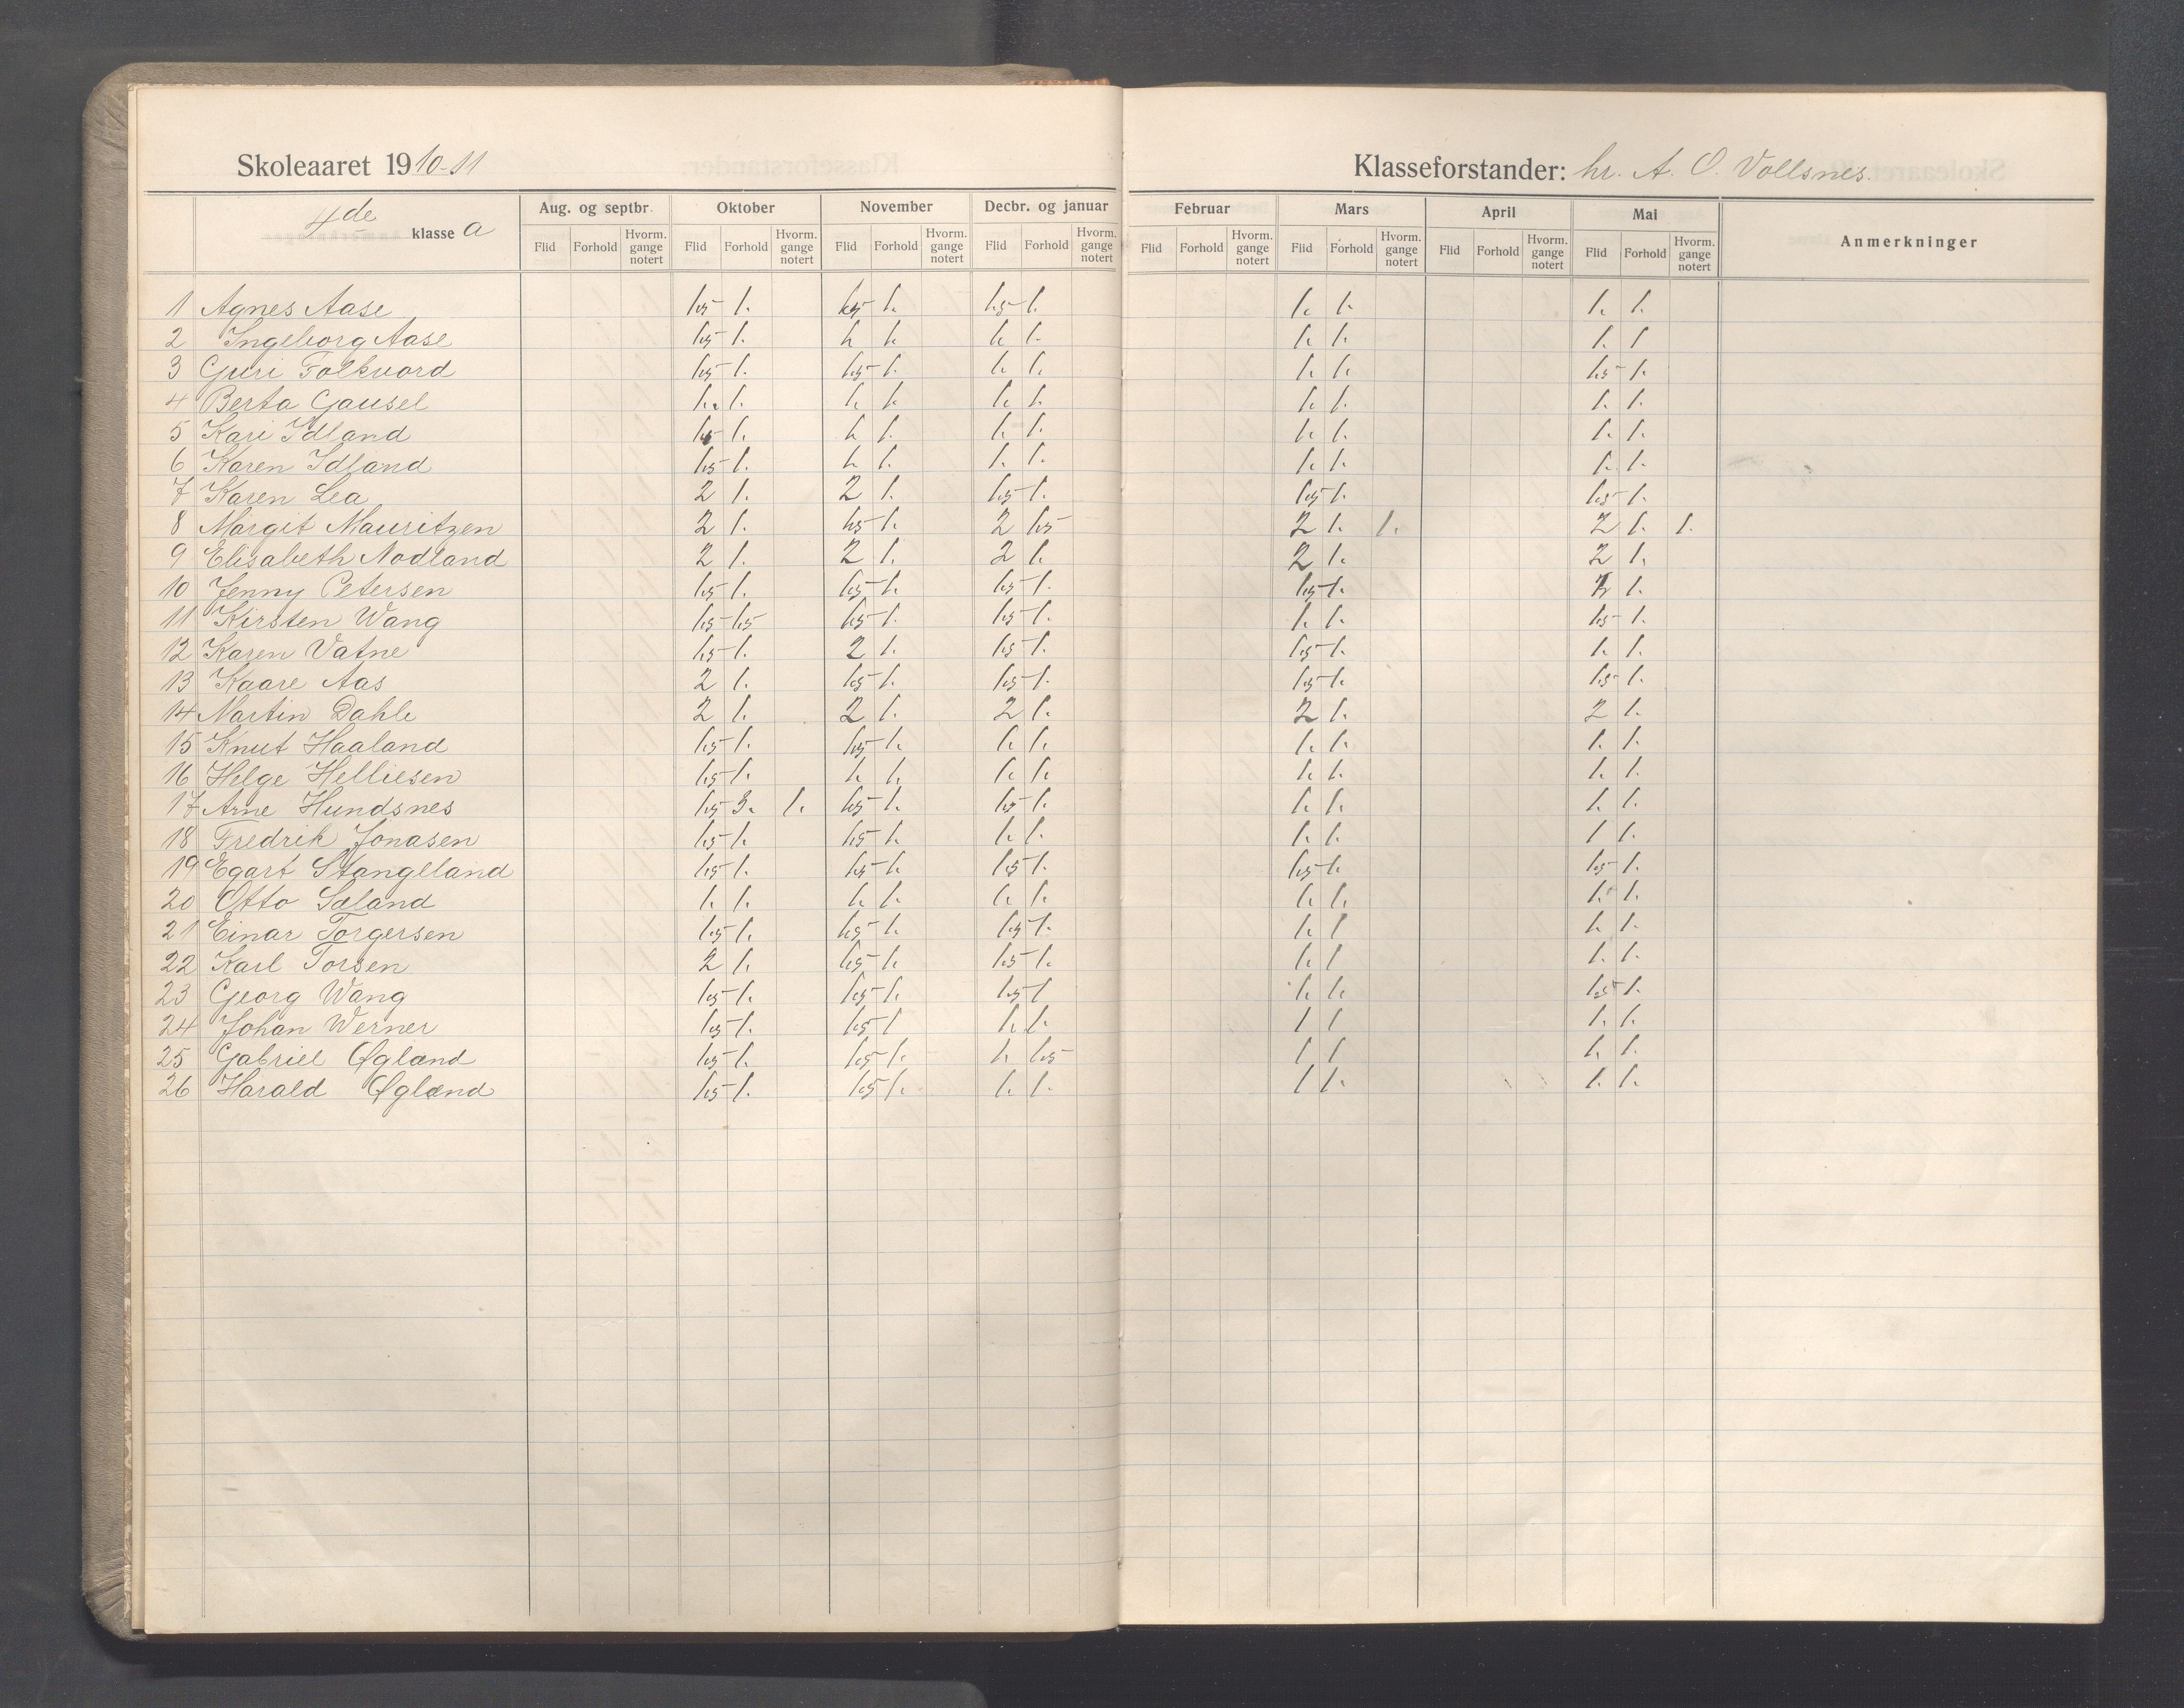 Skoleaaret 1910-11
Klasseforstander: hr. A. O. Vollsnes.
4de klasse a
Aug. og septbr. Oktober November Decbr. og januar Februar Mars April Mai Anmerkninger
Flid Forhold Hvorm. gange notert Flid Forhold Hvorm. gange notert Flid Forhold Hvorm. gange notert Flid Forhold Hvorm. gange notert Flid Forhold Hvorm. gange notert Flid Forhold Hvorm. gange notert Flid Forhold Hvorm. gange notert Flid Forhold Hvorm. gange notert
1 Agnes Aase 1.5 1. 1.5 1. 1.5 1. 1. 1. 1. 1.
2 Ingeborg Aase 1.5 1. 1. 1. 1. 1. 1. 1. 1. 1
3 Guri Folkvord 1.5 1. 1.5 1. 1. 1. 1. 1. 1.5 1.
4 Berta Gausel 1. 1. 1. 1. 1. 1. 1. 1. 1. 1.
5 Kari Idland 1. 1. 1. 1. 1. 1. 1. 1. 1.
6 Karen Idland 1.5 1. 1. 1. 1. 1. 1. 1. 1. 1.
7 Karen Lea 2 1. 2 1. 1.5 1. 1.5 1. 1.5 1.
8 Margit Mauritzen 2 1. 1.5 1. 2 1.5 2 1. 1. 2 1. 1.
9 Elisabeth Nodland 2 1. 2 1. 2 1. 2 1. 2 1.
10 Jenny Petersen 1.5 1. 1.5 1. 1.5 1. 1.5 1. 1.
11 Kirsten Wang 1.5 1.5 1.5 1. 1.5 1. 1. 1. 1.5 1.
12 Karen Vatne 1.5 1. 2 1. 1.5 1. 1.5 1. 1. 1.
13 Kaare Aas 2 1. 1.5 1. 1.5 1. 1.5 1. 1.5 1.
14 Martin Dahle 2 1. 2 1. 2 1. 2 1. 2 1.
15 Knut Haaland 1.5 1. 1.5 1. 1. 1. 1. 1. 1. 1.
16 Helge Helliesen 1.5 1. 1. 1. 1. 1. 1. 1. 1. 1.
17 Arne Hundsnes 1.5 3. 1. 1.5 1. 1.5 1. 1. 1. 1. 1.
18 Fredrik Jonasen 1.5 1. 1.5 1. 1. 1. 1. 1. 1 1.
19 Egart Stangeland 1.5 1. 1.5 1. 1.5 1. 1.5 1. 1.5 1.
20 Otto Sæland 1. 1. 1. 1. 1. 1. 1. 1. 1. 1.
21 Einar Torgersen 1.5 1. 1.5 1. 1.5 1. 1. 1 1. 1.
22 Karl Torsen 2 1. 1.5 1. 1.5 1. 1. 1 1. 1.
23 Georg Wang 1.5 1. 1.5 1. 1.5 1 1. 1. 1.5 1.
24 Johan Werner 1.5 1. 1.5 1 1. 1. 1 1 1. 1.
25 Gabriel Øglænd 1.5 1. 1.5 1. 1. 1.5 1 1 1. 1.
26 Harald Øglænd 1.5 1. 1.5 1. 1. 1. 1 1. 1. 1.